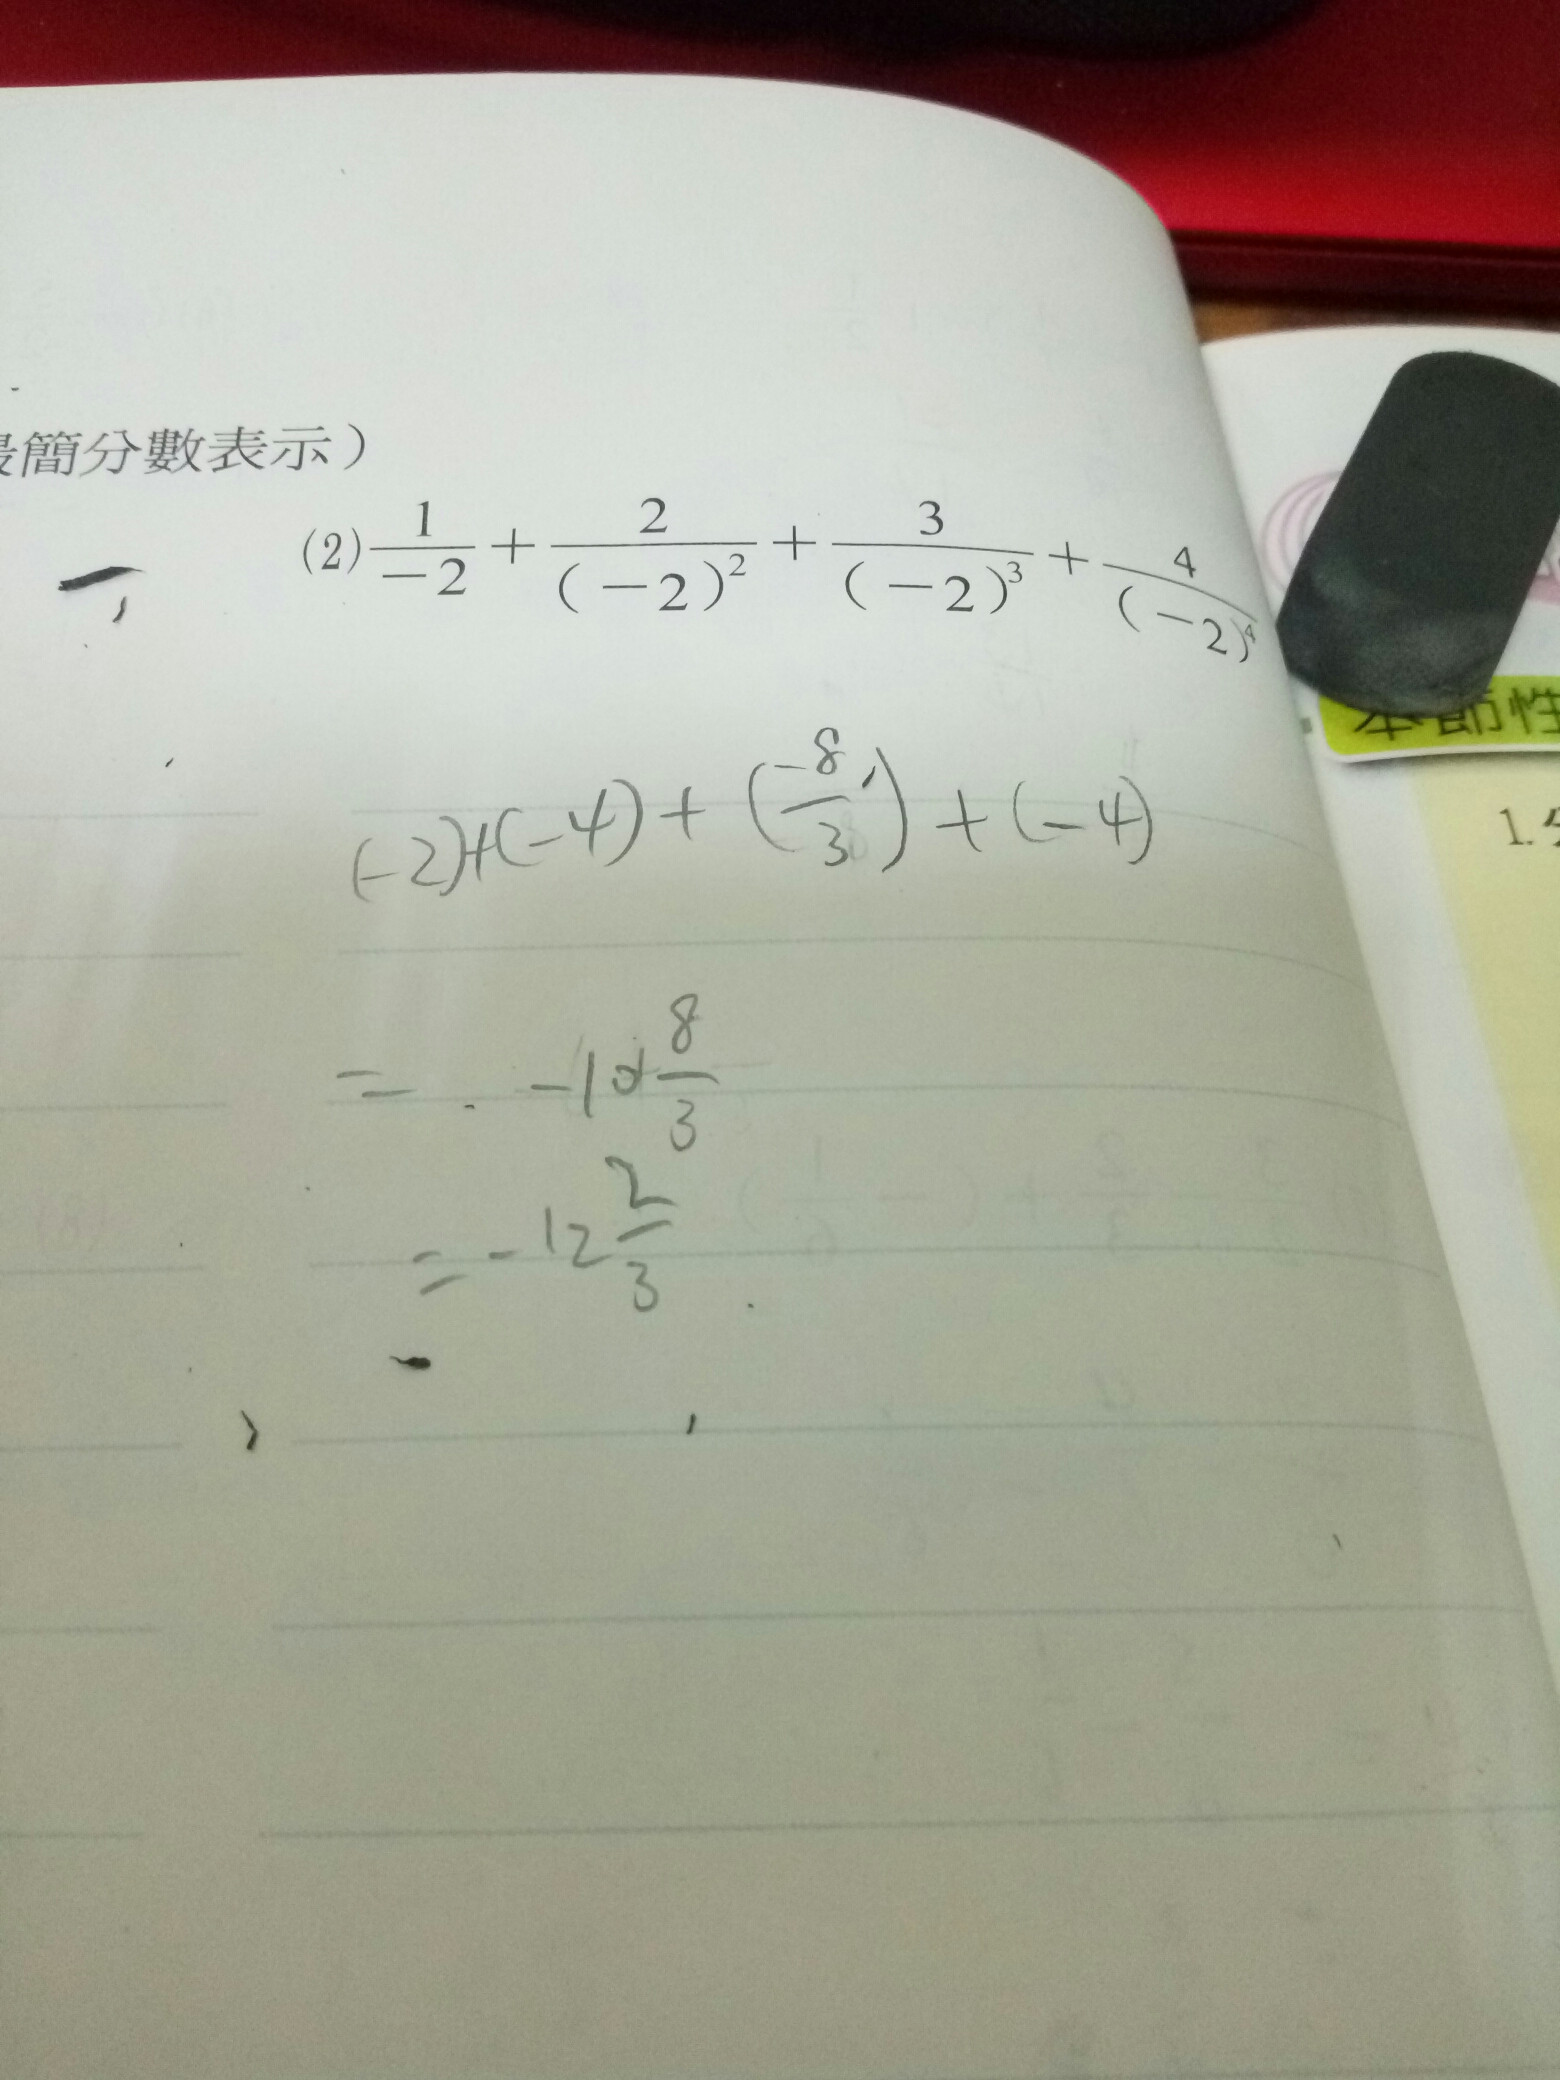 簡分數表示）
(2) \frac{1}{-2} + \frac{2}{(-2)^2} + \frac{3}{(-2)^3} + \frac{4}{(-2)^4}
(-2)+(-4)+(\frac{-8}{3})+(-4)
= -10+\frac{8}{3}
= -12\frac{2}{3}
本節性
1.